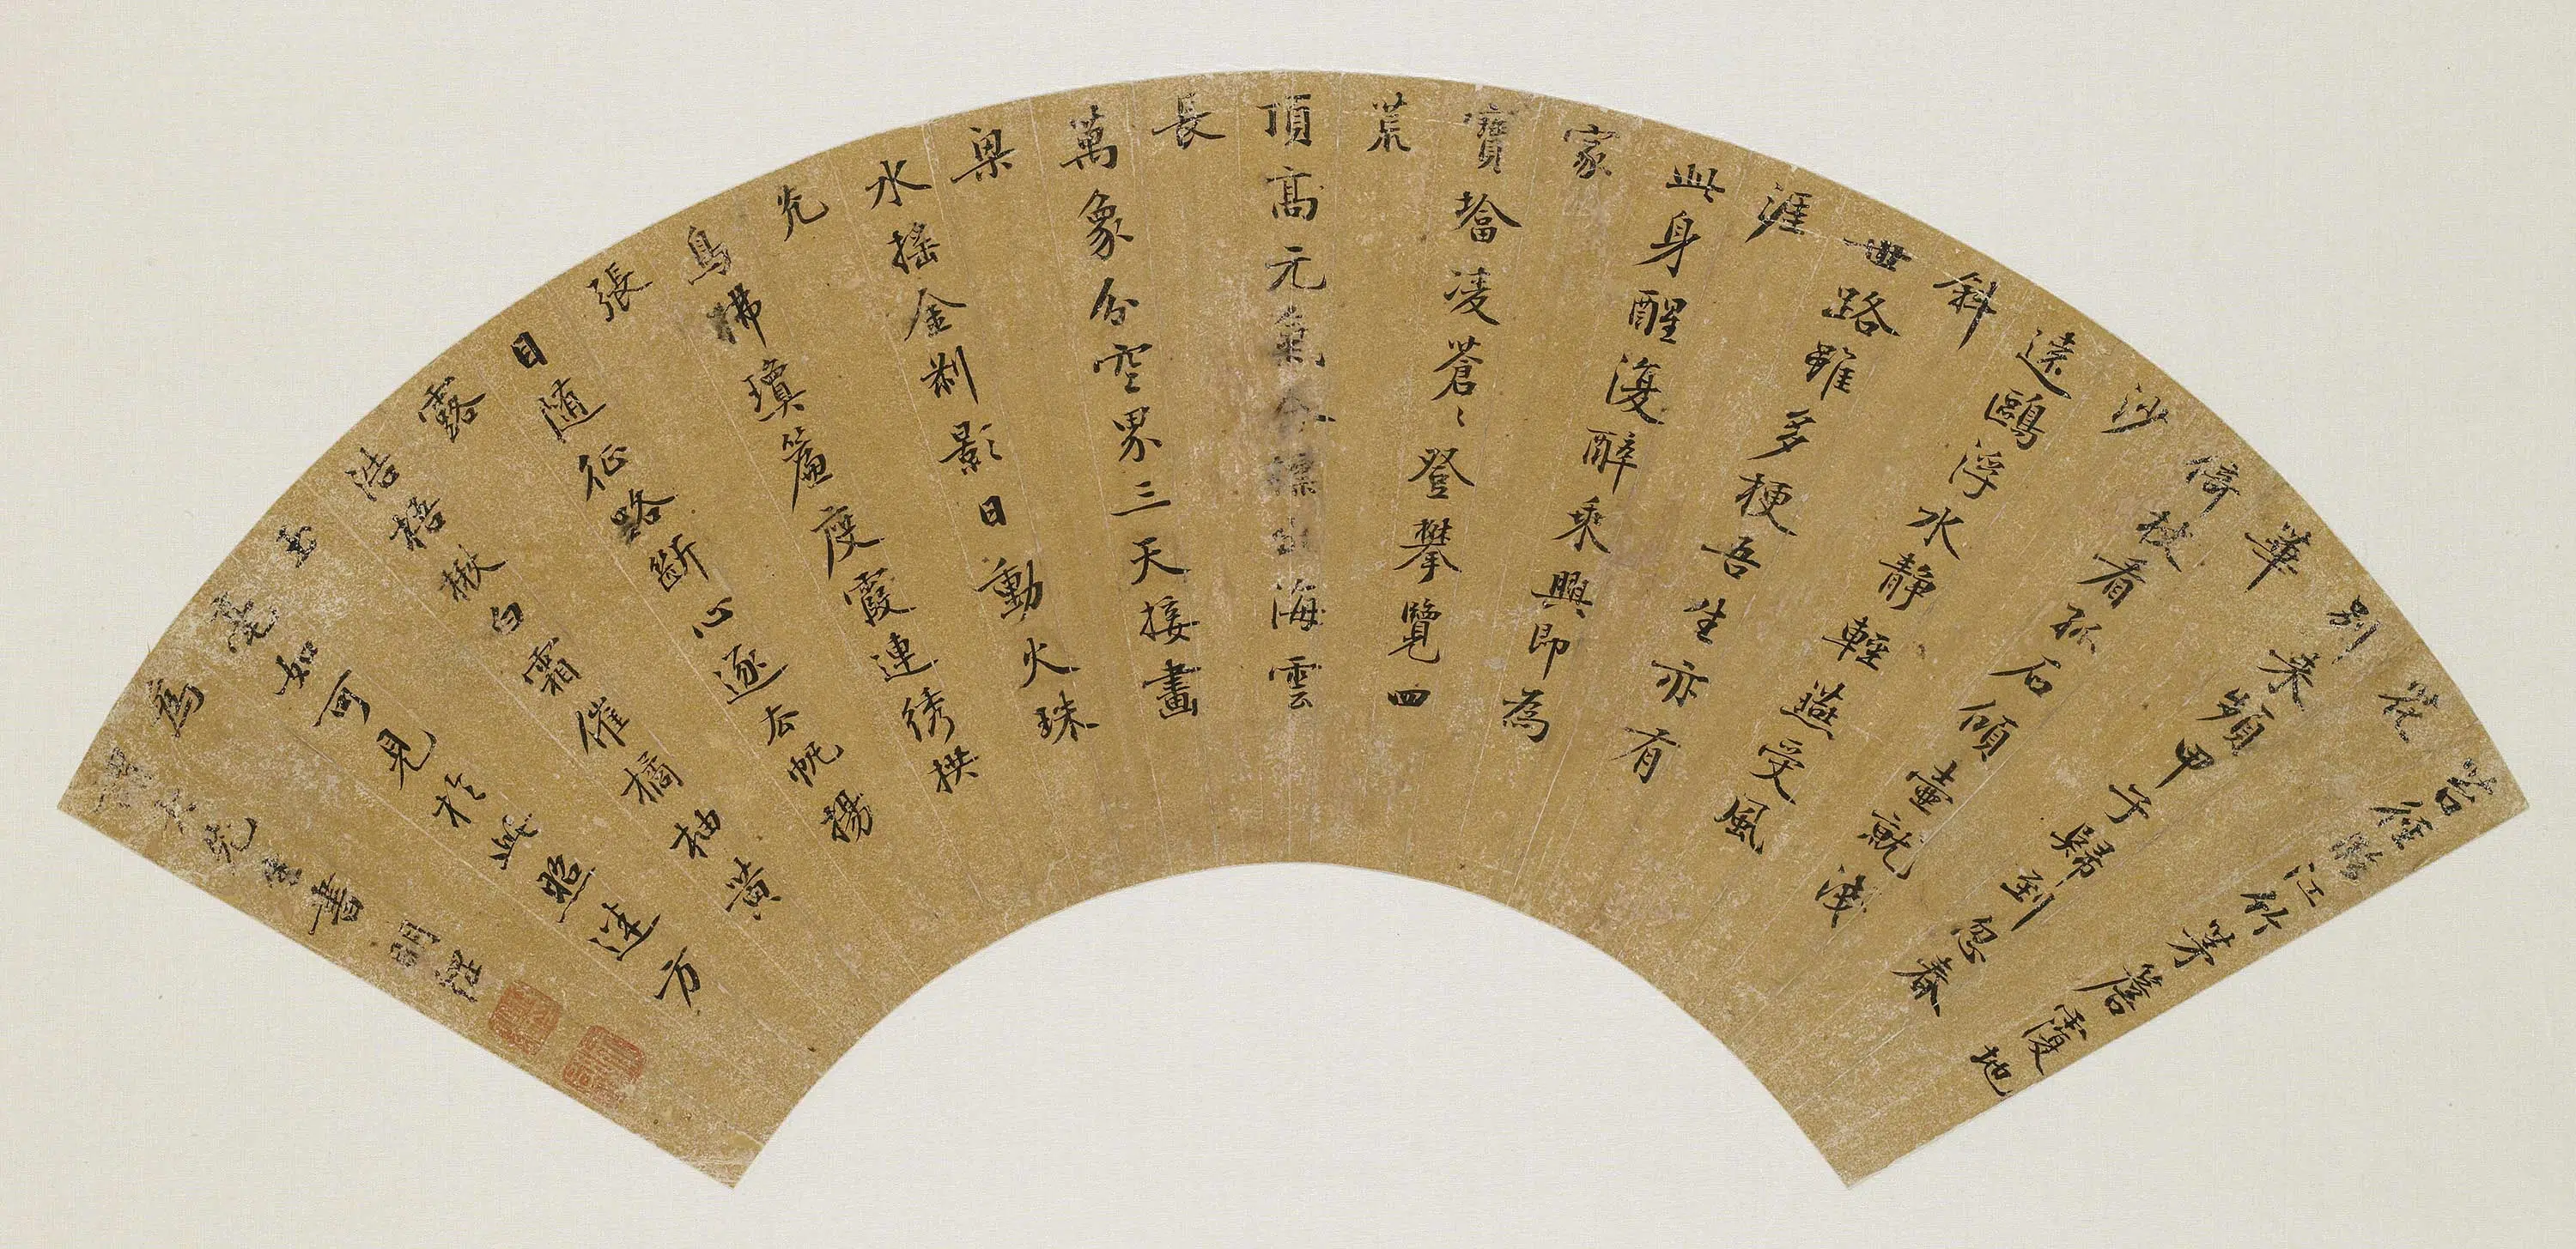 苔徑臨江竹茅簷覆地
花
別來頻甲子歸到忽春
華
倚杖看孤石傾壺就淺
沙
遠鷗浮水靜輕燕受風
斜
世路雖多梗吾生亦有
涯
此身醒復醉乘興即為
家
寶塔凌蒼〻登攀覽四
荒
頂高元氣合標出海雲
長
萬象分空界三天接畫
梁
水搖金剎影日動火珠
光
鳥拂瓊簾度霞連綉栱
張
目隨征路斷心逐去帆揚
露
浩梧楸白霜催橘柚黃
玉
毫如可見於此照迷方
為
先生書